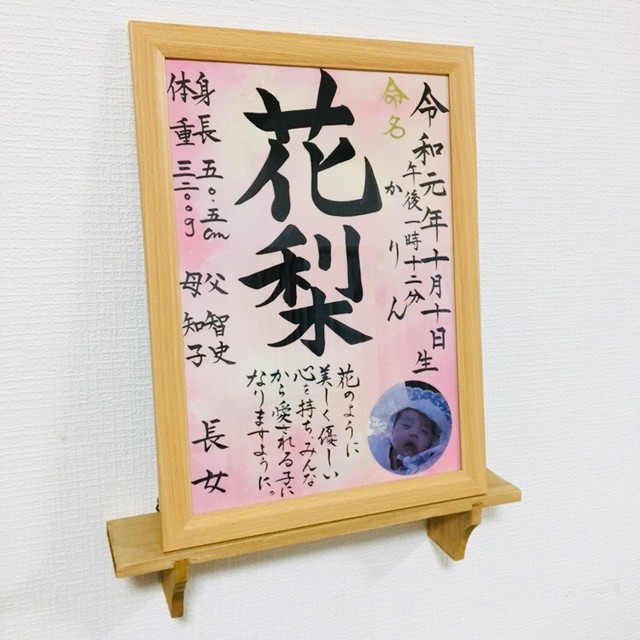 令和元年十月十日生
午後一時十二分
命名
かりん
花梨
花のように
美しく優しい
心を持ち、みんな
から愛される子に
なりますように。
身長 五〇.五cm
体重 三二〇〇g
父 智史
母 知子
長女